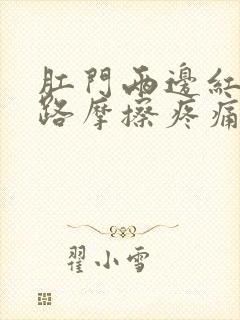 肛門兩邊紅
路摩擦疼痛
翟小雪